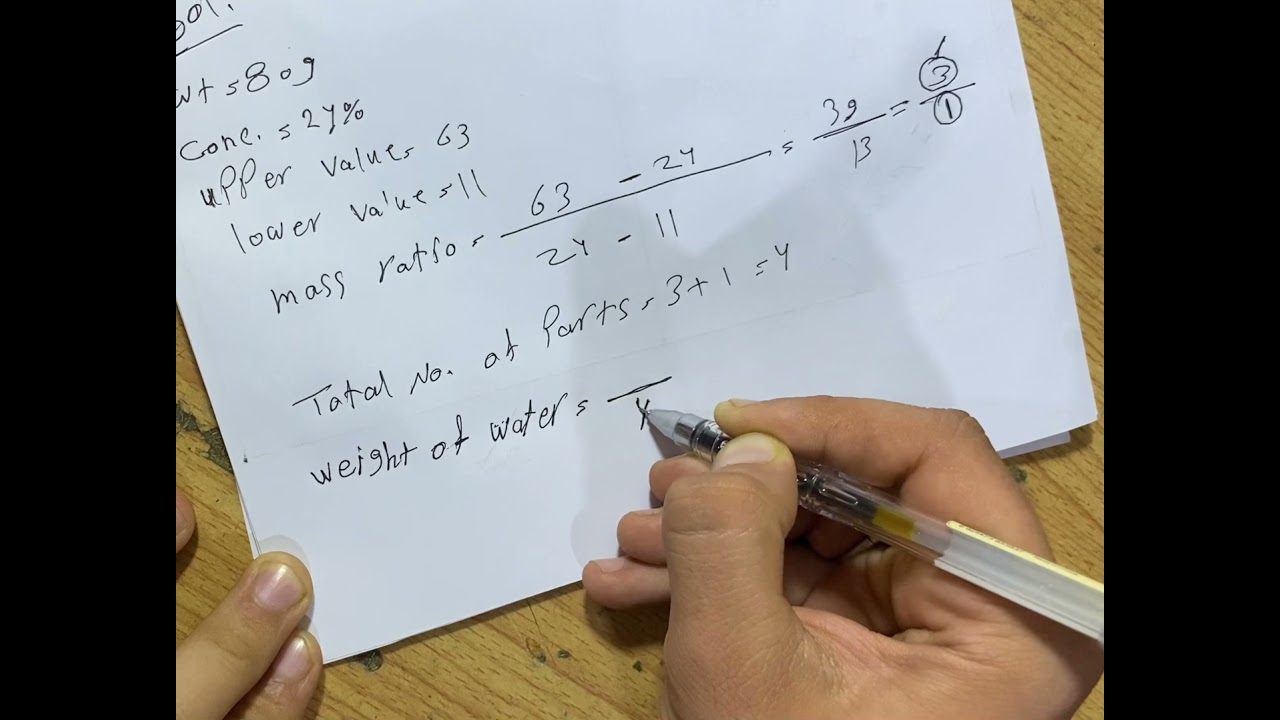 Sol.
wt = 80g
Conc. = 24%
upper value = 63
lower value = 11
mass ratio = 63 - 24 / 24 - 11 = 39 / 13 = 3 / 1
Total No. at Parts = 3 + 1 = 4
weight of water = / 4